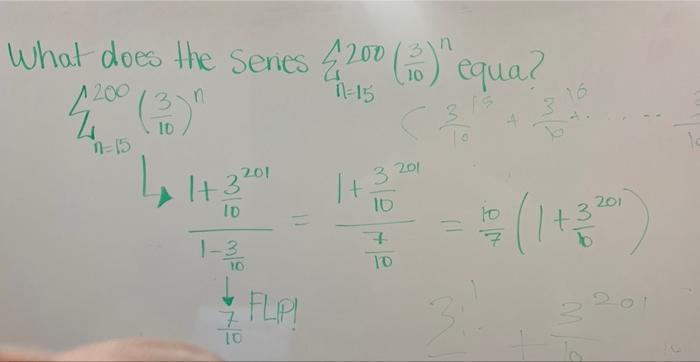 What does the series Σ 200 n=15 (3/10)^n equa?
Σ 200 n=15 (3/10)^n
( 3/10^15 + 3/10^16 + .....
↳ (1+3/10^201)/(1-3/10) = (1+3/10^201)/(7/10) = 10/7 (1+3/10^201)
↓
7/10 FLIP!
+ 3/10^201